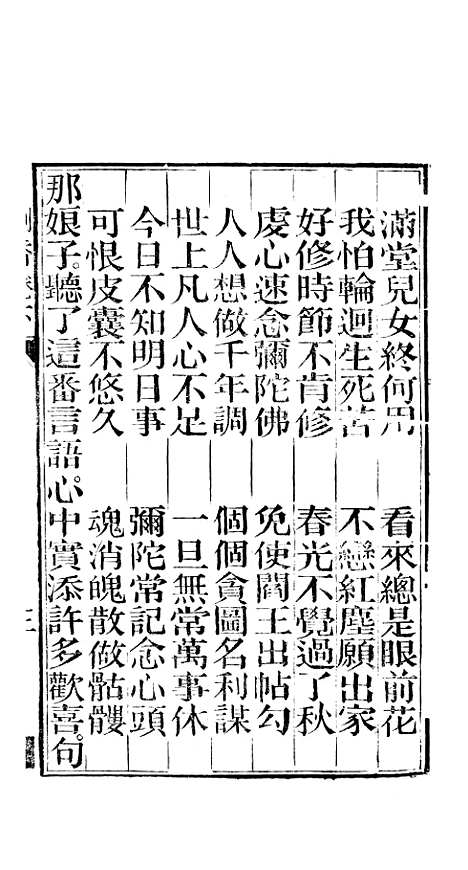 滿堂兒女終何用 看來總是眼前花
我怕輪迴生死苦 不戀紅塵願出家
好修時節不肯修 春光不覺過了秋
虔心速念彌陀佛 免使閻王出帖勾
人人想做千年調 個個貪圖名利謀
世上凡人心不足 一旦無常萬事休
今日不知明日事 彌陀常記念心頭
可恨皮囊不悠久 魂消魄散做骷髏
那娘子。聽了這番言語。心中實添許多歡喜。句